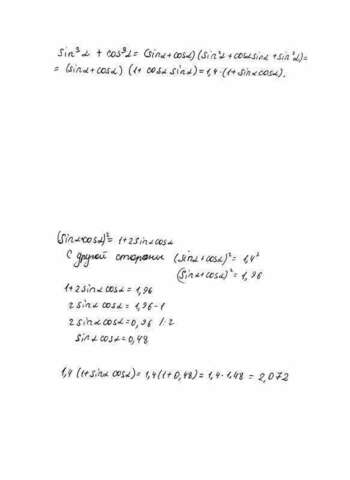 sin³α + cos³α = (sinα + cosα)(sin²α + cosα sinα + sin²α) =
= (sinα + cosα) (1 + cosα sinα) = 1,4 · (1 + sinα cosα).
(sinα+cosα)² = 1 + 2sinα cosα
С другой стороны (sinα + cosα)² = 1,4²
(sinα + cosα)² = 1,96
1 + 2sinα cosα = 1,96
2 sinα cosα = 1,96 - 1
2 sinα cosα = 0,96 /: 2
sinα cosα = 0,48
1,4 (1 + sinα cosα) = 1,4 (1 + 0,48) = 1,4 · 1,48 = 2,072